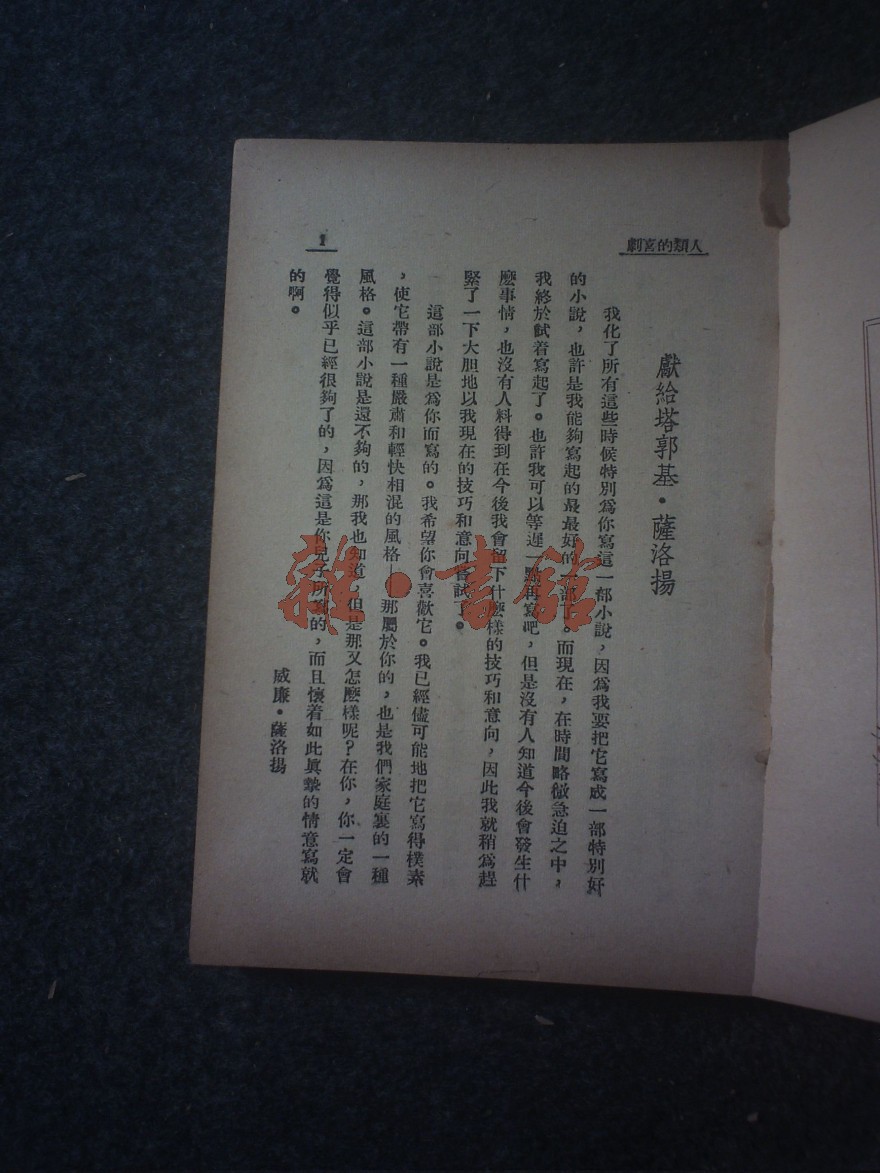 人類的喜劇
1
獻給塔郭基·薩洛揚
我化了所有這些時候特別爲你寫這一部小說，因爲我要把它寫成一部特別好
的小說，也許是我能夠寫起的最最好的一部了。而現在，在時間略微急迫之中，
我終於試着寫起了。也許我可以等遲一點再寫吧，但是沒有人知道今後會發生什
麽事情，也沒有人料得到在今後我會留下什麽樣的技巧和意向，因此我就稍爲趕
緊了一下大胆地以我現在的技巧和意向嘗試了。
這部小說是爲你而寫的。我希望你會喜歡它。我已經儘可能地把它寫得樸素
，使它帶有一種嚴肅和輕快相混的風格——那屬於你的，也是我們家庭裏的一種
風格。這部小說是還不夠的，那我也知道，但是那又怎麽樣呢？在你，你一定會
覺得似乎已經很夠了的，因爲這是你兒子所寫的，而且懷着如此眞摯的情意寫就
的啊。
威廉·薩洛揚
雜·書館